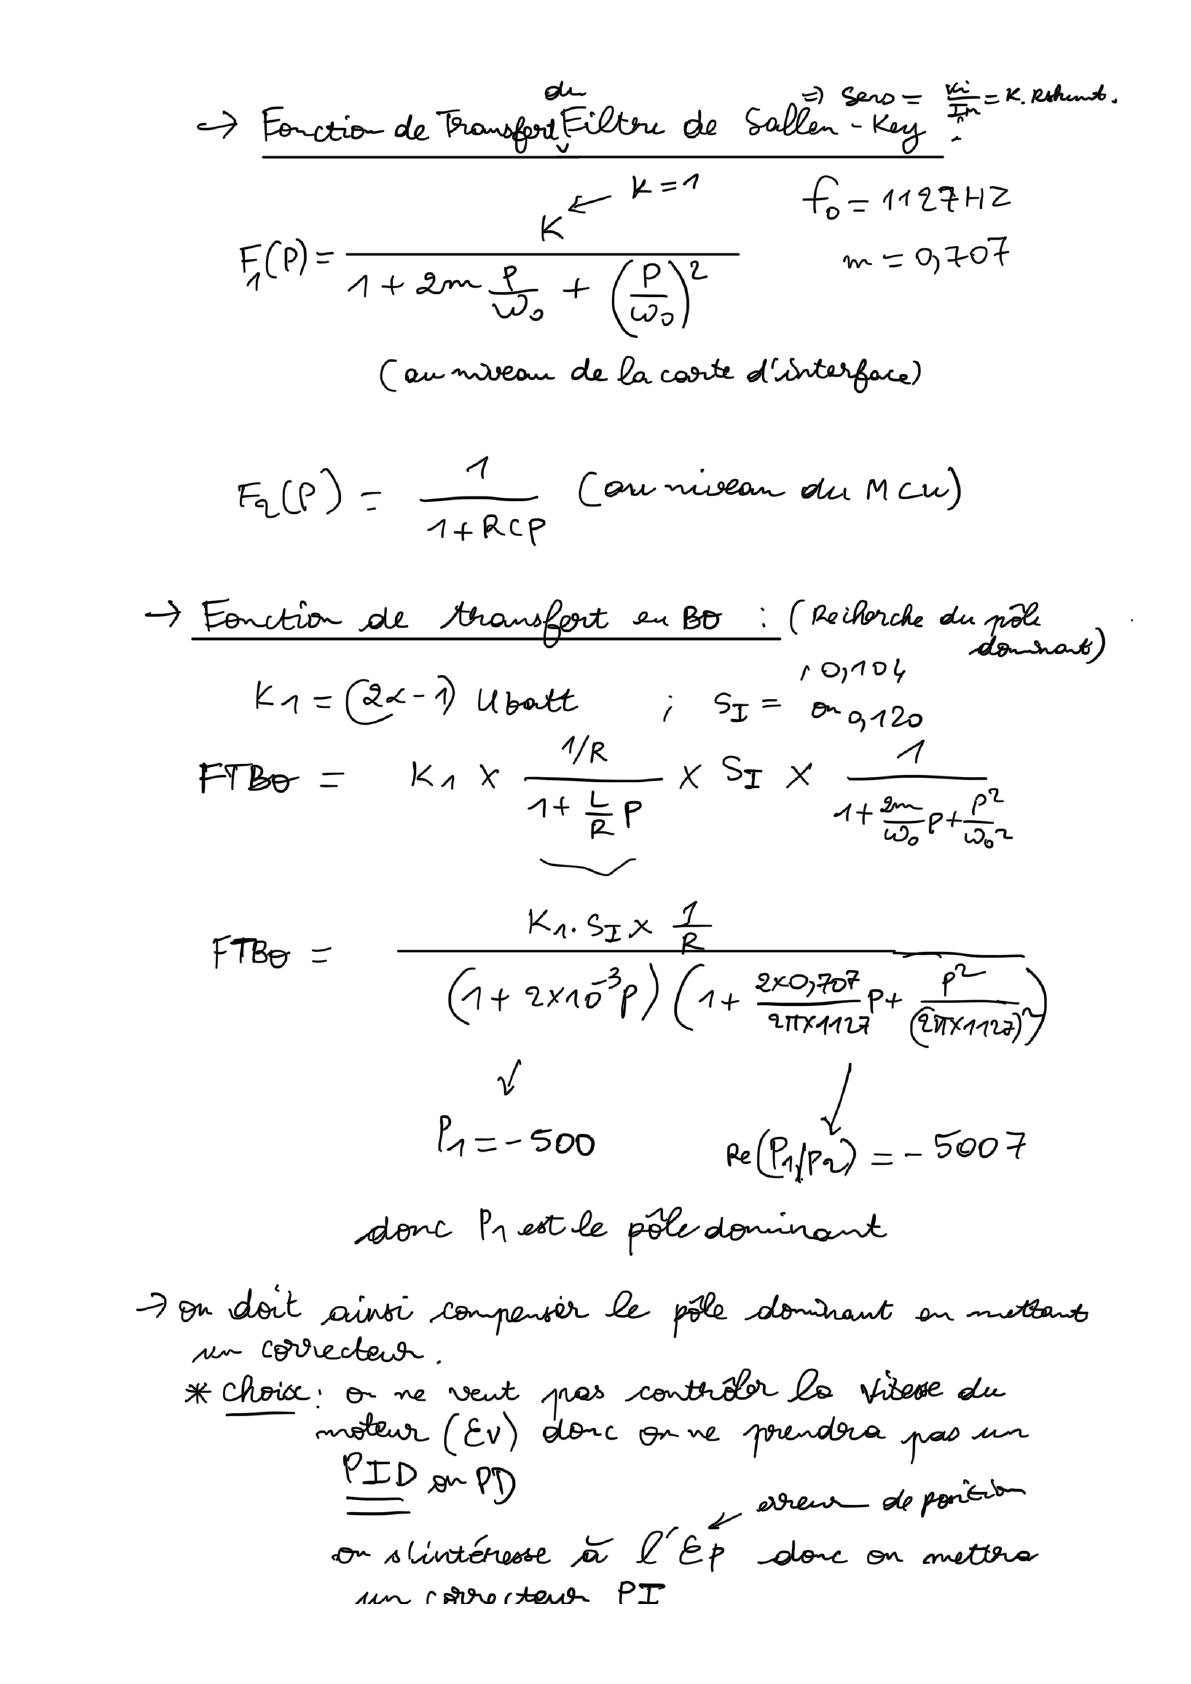 => Sens = Vi/Im = K. Rshunt.
→ Fonction de Transfert du Filtre de Sallen-Key
K ← K=1
f₀ = 1127HZ
F₁(P) = K / (1 + 2m P/ω₀ + (P/ω₀)²)
m = 0,707
(au niveau de la carte d'interface)
F₂(P) = 1 / (1+RCP) (au niveau du MCU)
→ Fonction de transfert en BO : (Recherche du pôle dominant)
K₁ = (2α-1) Ubatt ; S_I = 0,104 ou 0,120
FTBO = K₁ × (1/R) / (1+ L/R P) × S_I × 1 / (1+ 2m/ω₀ P + P²/ω₀²)
FTBO = K₁. S_I × 1/R / ((1+ 2×10⁻³P) (1+ 2×0,707/2π×1127 P + P²/(2π×1127)²))
P₁ = -500
Re(P₁/P₂) = -5007
donc P₁ est le pôle dominant
→ on doit ainsi compenser le pôle dominant en mettant
un correcteur.
* choix : on ne veut pas contrôler la vitesse du
moteur (Ev) donc on ne prendra pas un
PID ou PD
← erreur de position
on s'intéresse à l'Ep donc on mettra
un correcteur PI